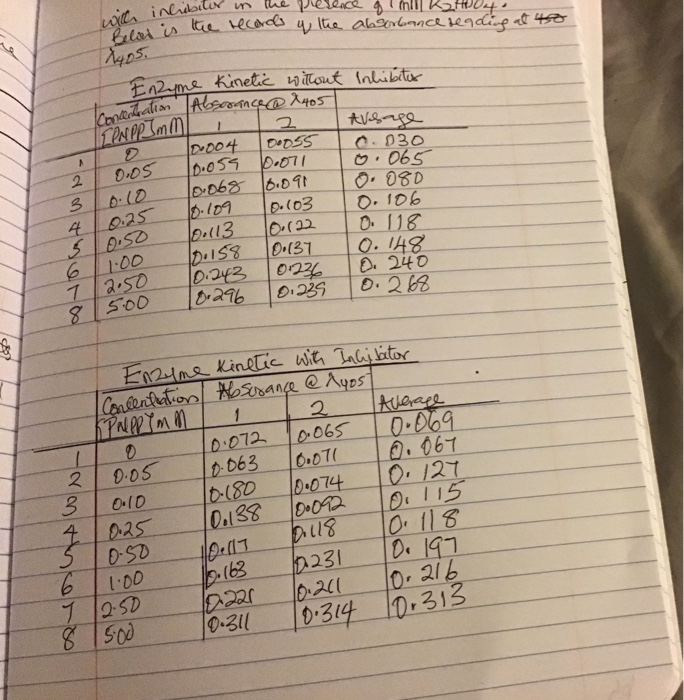 with inhibitor in the presence of 1 mM K2HPO4.
Below is the records of the absorbance reading at 450
λ405.
Enzyme Kinetic without Inhibitor
Concentration Absorance @ λ405
[PNPP]mM 1 2 Average
1 0 0.004 0.055 0.030
2 0.05 0.059 0.071 0.065
3 0.10 0.068 0.091 0.080
4 0.25 0.109 0.103 0.106
5 0.50 0.113 0.122 0.118
6 1.00 0.158 0.137 0.148
7 2.50 0.243 0.236 0.240
8 5.00 0.296 0.239 0.268
Enzyme Kinetic with Inhibitor
Concentration Absorance @ λ405
[PNPP]mM 1 2 Average
1 0 0.072 0.065 0.069
2 0.05 0.063 0.071 0.067
3 0.10 0.180 0.074 0.127
4 0.25 0.138 0.092 0.115
5 0.50 0.117 0.118 0.118
6 1.00 0.163 0.231 0.197
7 2.50 0.221 0.211 0.216
8 5.00 0.311 0.314 0.313